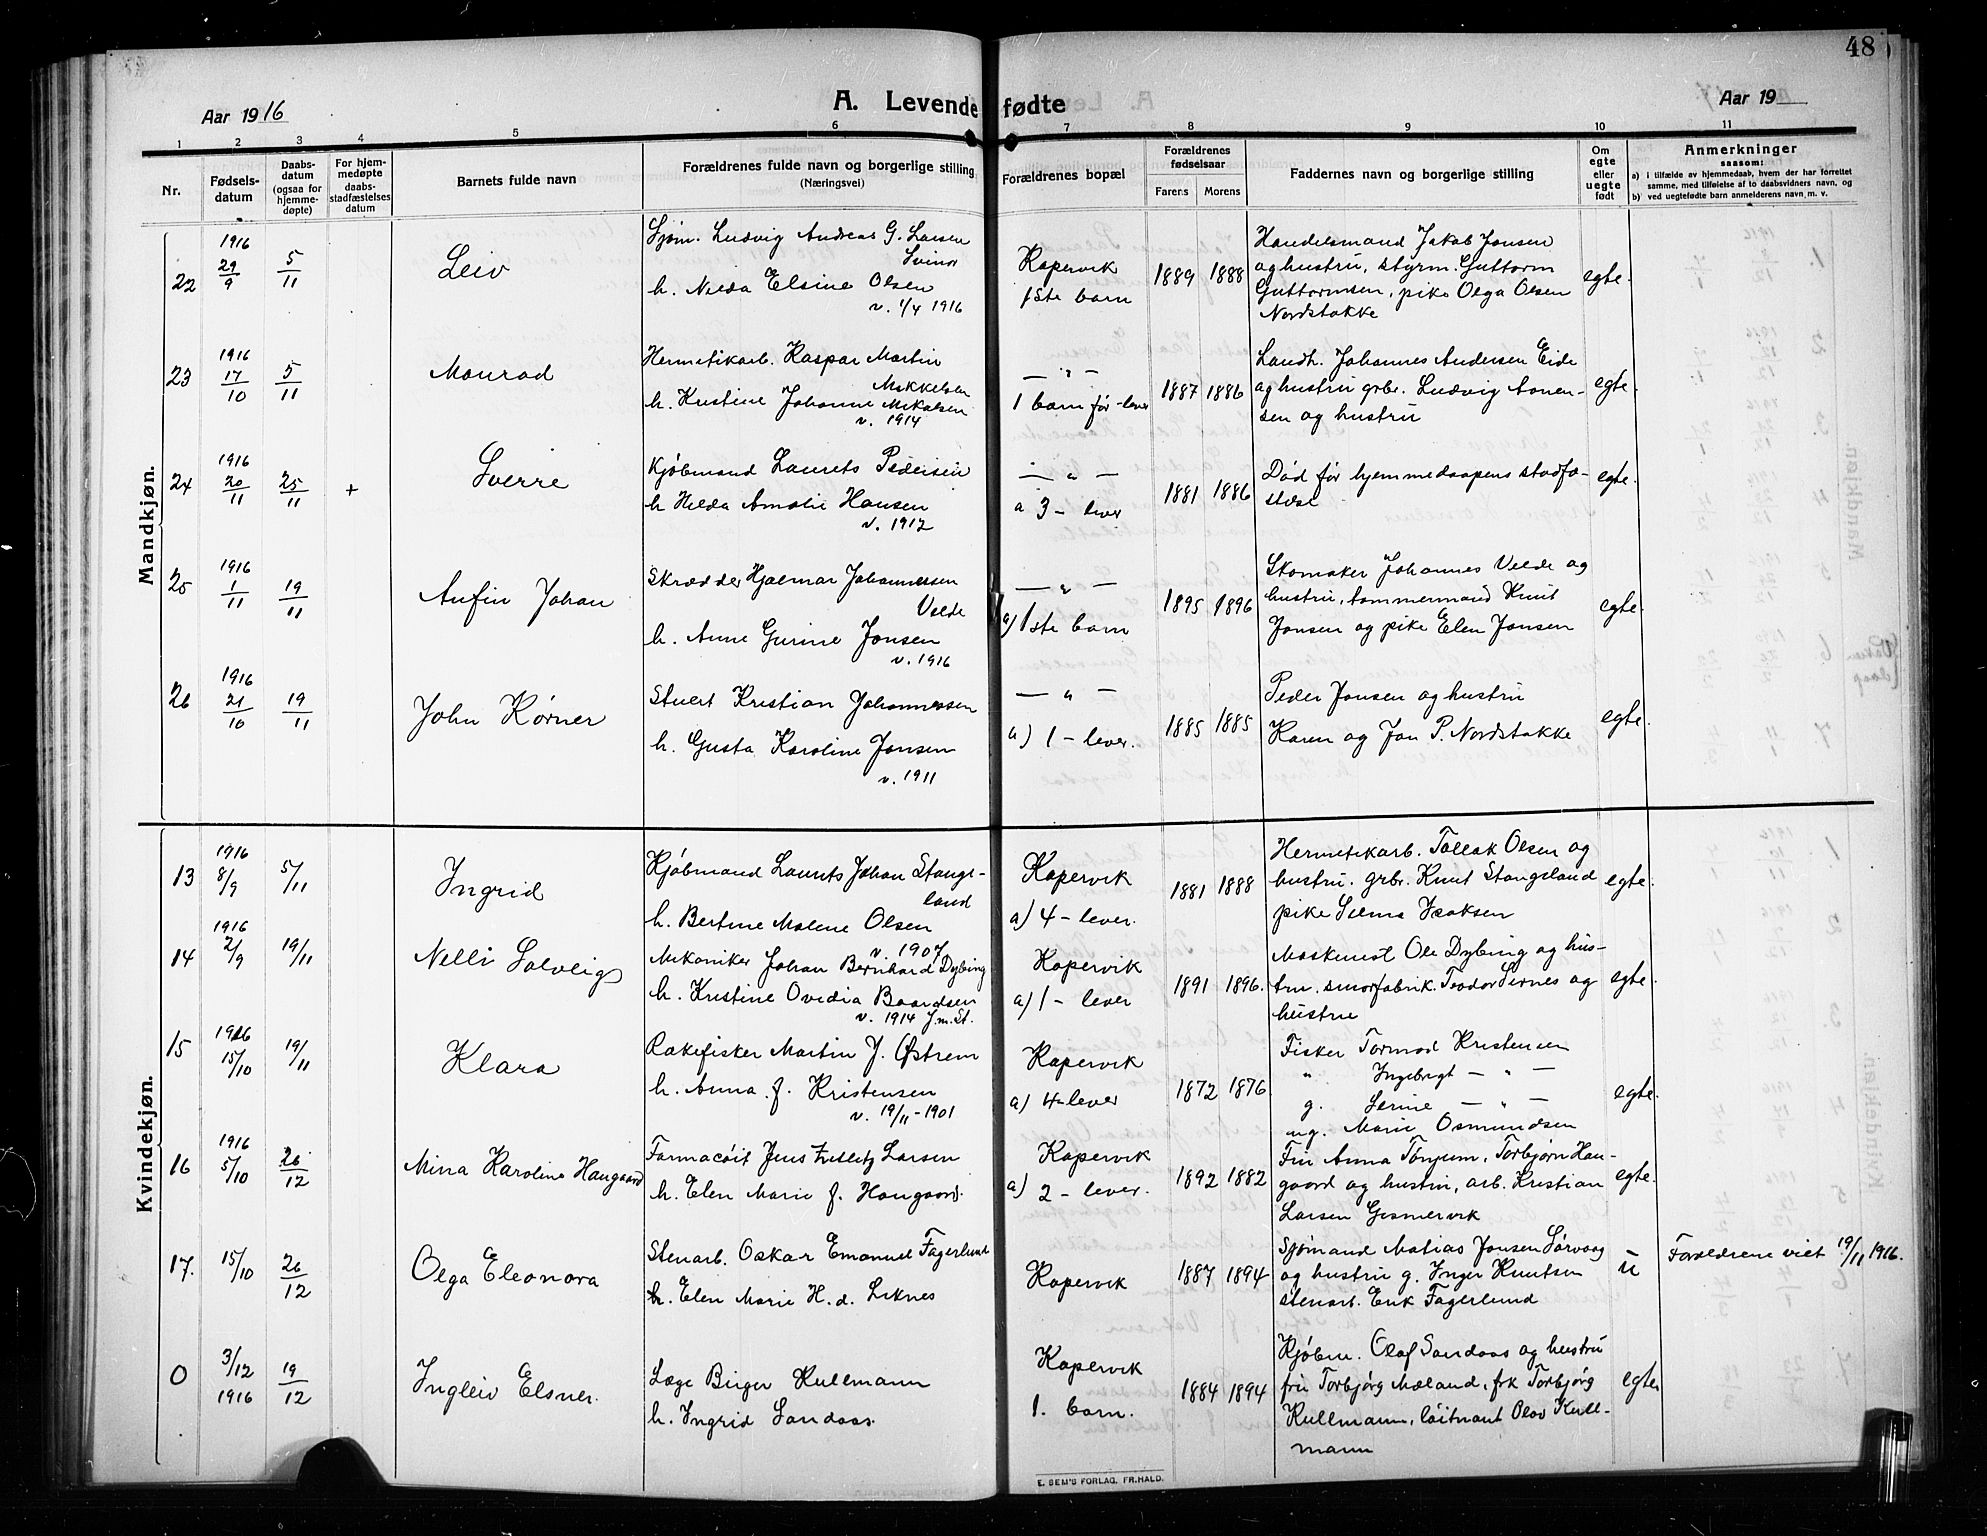 48
Aar 1916
A. Levende fødte
Aar 19
1 2 3 4 5 6 7 8 9 10 11
Nr.
Fødsels-
datum
Daabs-
datum
(ogsaa for
hjemme-
døpte)
For hjem-
medøpte
daabs-
stadfæstelses
datum
Barnets fulde navn
Forældrenes fulde navn og borgerlige stilling
(Næringsvei)
Forældrenes bopæl
Forældrenes
fødselsaar
Farens Morens
Faddernes navn og borgerlige stilling
Om
egte
eller
uegte
født
Anmerkninger
saasom:
a) i tilfælde av hjemmedaab, hvem der har forrettet
samme, med tilføielse af to daabsvidners navn, og
b) ved uegtefødte barn anmelderens navn m. v.
Mandkjøn.
22
1916
29/9
5/11
Leiv
Sjøm. Ludvig Andreas G. Larsen
h. Nilda Elsine Olsen
v. 1/4 1916
Kopervik
1ste barn
1889 1888
Handelsmand Jakob Jonsen
og hustru, styrm. Guttorm
Guttormsen, pike Olga Olsen
Nordstokke
egte.
23
1916
17/10
5/11
Monrad
Hermetikarb. Kaspar Martin
Mikkelsen
h. Kristine Johanne Mikalsen
v. 1914
— " —
1 barn før - lever
1887 1886
Landh. Johannes Andersen Eide
og hustru grbr. Ludvig Aanen-
sen og hustru
egte.
24
1916
20/11
25/11
+
Sverre
Kjøbmand Laurits Pedersen
h Hilda Amalie Hansen
v. 1912
— " —
a 3 - lever
1881 1886
Død før hjemmedaapens stadfæ-
stelse
egte.
25
1916
1/11
19/11
Anfin Johan
Skrædder Hjalmar Johannessen
Velde
h. Anne Gurine Jonsen
v. 1916
— " —
a) 1ste barn
1895 1896
Skomaker Johannes Velde og
hustru, tømmermand Knut
Jonsen og pike Elen Jonsen
egte.
26
1916
21/10
19/11
John Kørner
Stuert Kristian Johannessen
h. Gusta Karoline Jonsen
v. 1911
— " —
a) 1 - lever.
1885 1885
Peder Jonsen og hustru
Karen og Jon P. Nordstokke
egte.
Kvindekjøn.
13
1916
8/9
5/11
Ingrid
Kjøbmand Laurits Johan Stange-
land
h. Bertine Malene Olsen
v. 1907
Kopervik
a) 4 - lever.
1881 1888
Hermetikarb. Tollak Olsen og
hustru. grbr. Knut Stangeland
pike Selma Isaksen
egte.
14
1916
2/9
19/11
Nelli Solveig
Mekaniker Johan Bernhard Dybing
h. Kristine Ovedia Baardsen
v. 1914 J.m.St.
Kopervik
a) 1 - lever
1891 1896.
Maskinist Ole Dybing og hus-
tru. smørfabrik. Teodor Sirnes og
hustru
egte.
15
1916
15/10
19/11
Klara
Rækefisker Martin J. Østrem
h. Anna f. Kristensen
v. 19/11 - 1901
Kopervik
a) 4 - lever
1872 1876
Fisker Tormod Kristensen
" Ingebrigt — " —
g. Serine — " —
ug. Marie Osmundsen
egte.
16
1916
5/10
26/12
Mina Karoline Haugaard
Farmacøit Jens Larsen
h. Elen Marie f. Haugaard.
Kopervik
a) 2 - lever.
1892 1882
Fru Anna Tønjum, Torbjørn Hau-
gaard og hustru, arb. Kristian
Larsen Gismervik
egte.
17.
15/10
26/12
Olga Eleonora
Stenarb. Oskar Emanuel Fagerlund
h. Elen Marie H. d. Liknes
Kopervik
1887 1894
Sjømand Matias Jonsen Sørvaag
og hustru g. Inger Knutsen
stenarb. Erik Fagerlund
u
Forældrene viet 19/11 1916.
0
3/12
1916
19/12
Ingleiv Elsner.
Læge Birger Kullmann
h. Ingrid Sandaas.
Kopervik
1. barn.
1884 1894
Kjøbm. Olaf Sandaas og hustru
fru Torbjørg Mæland, frk Torbjørg
Kullmann, løitnant Olav Kull-
mann
egte
E. SEM'S FORLAG, FR.HALD.